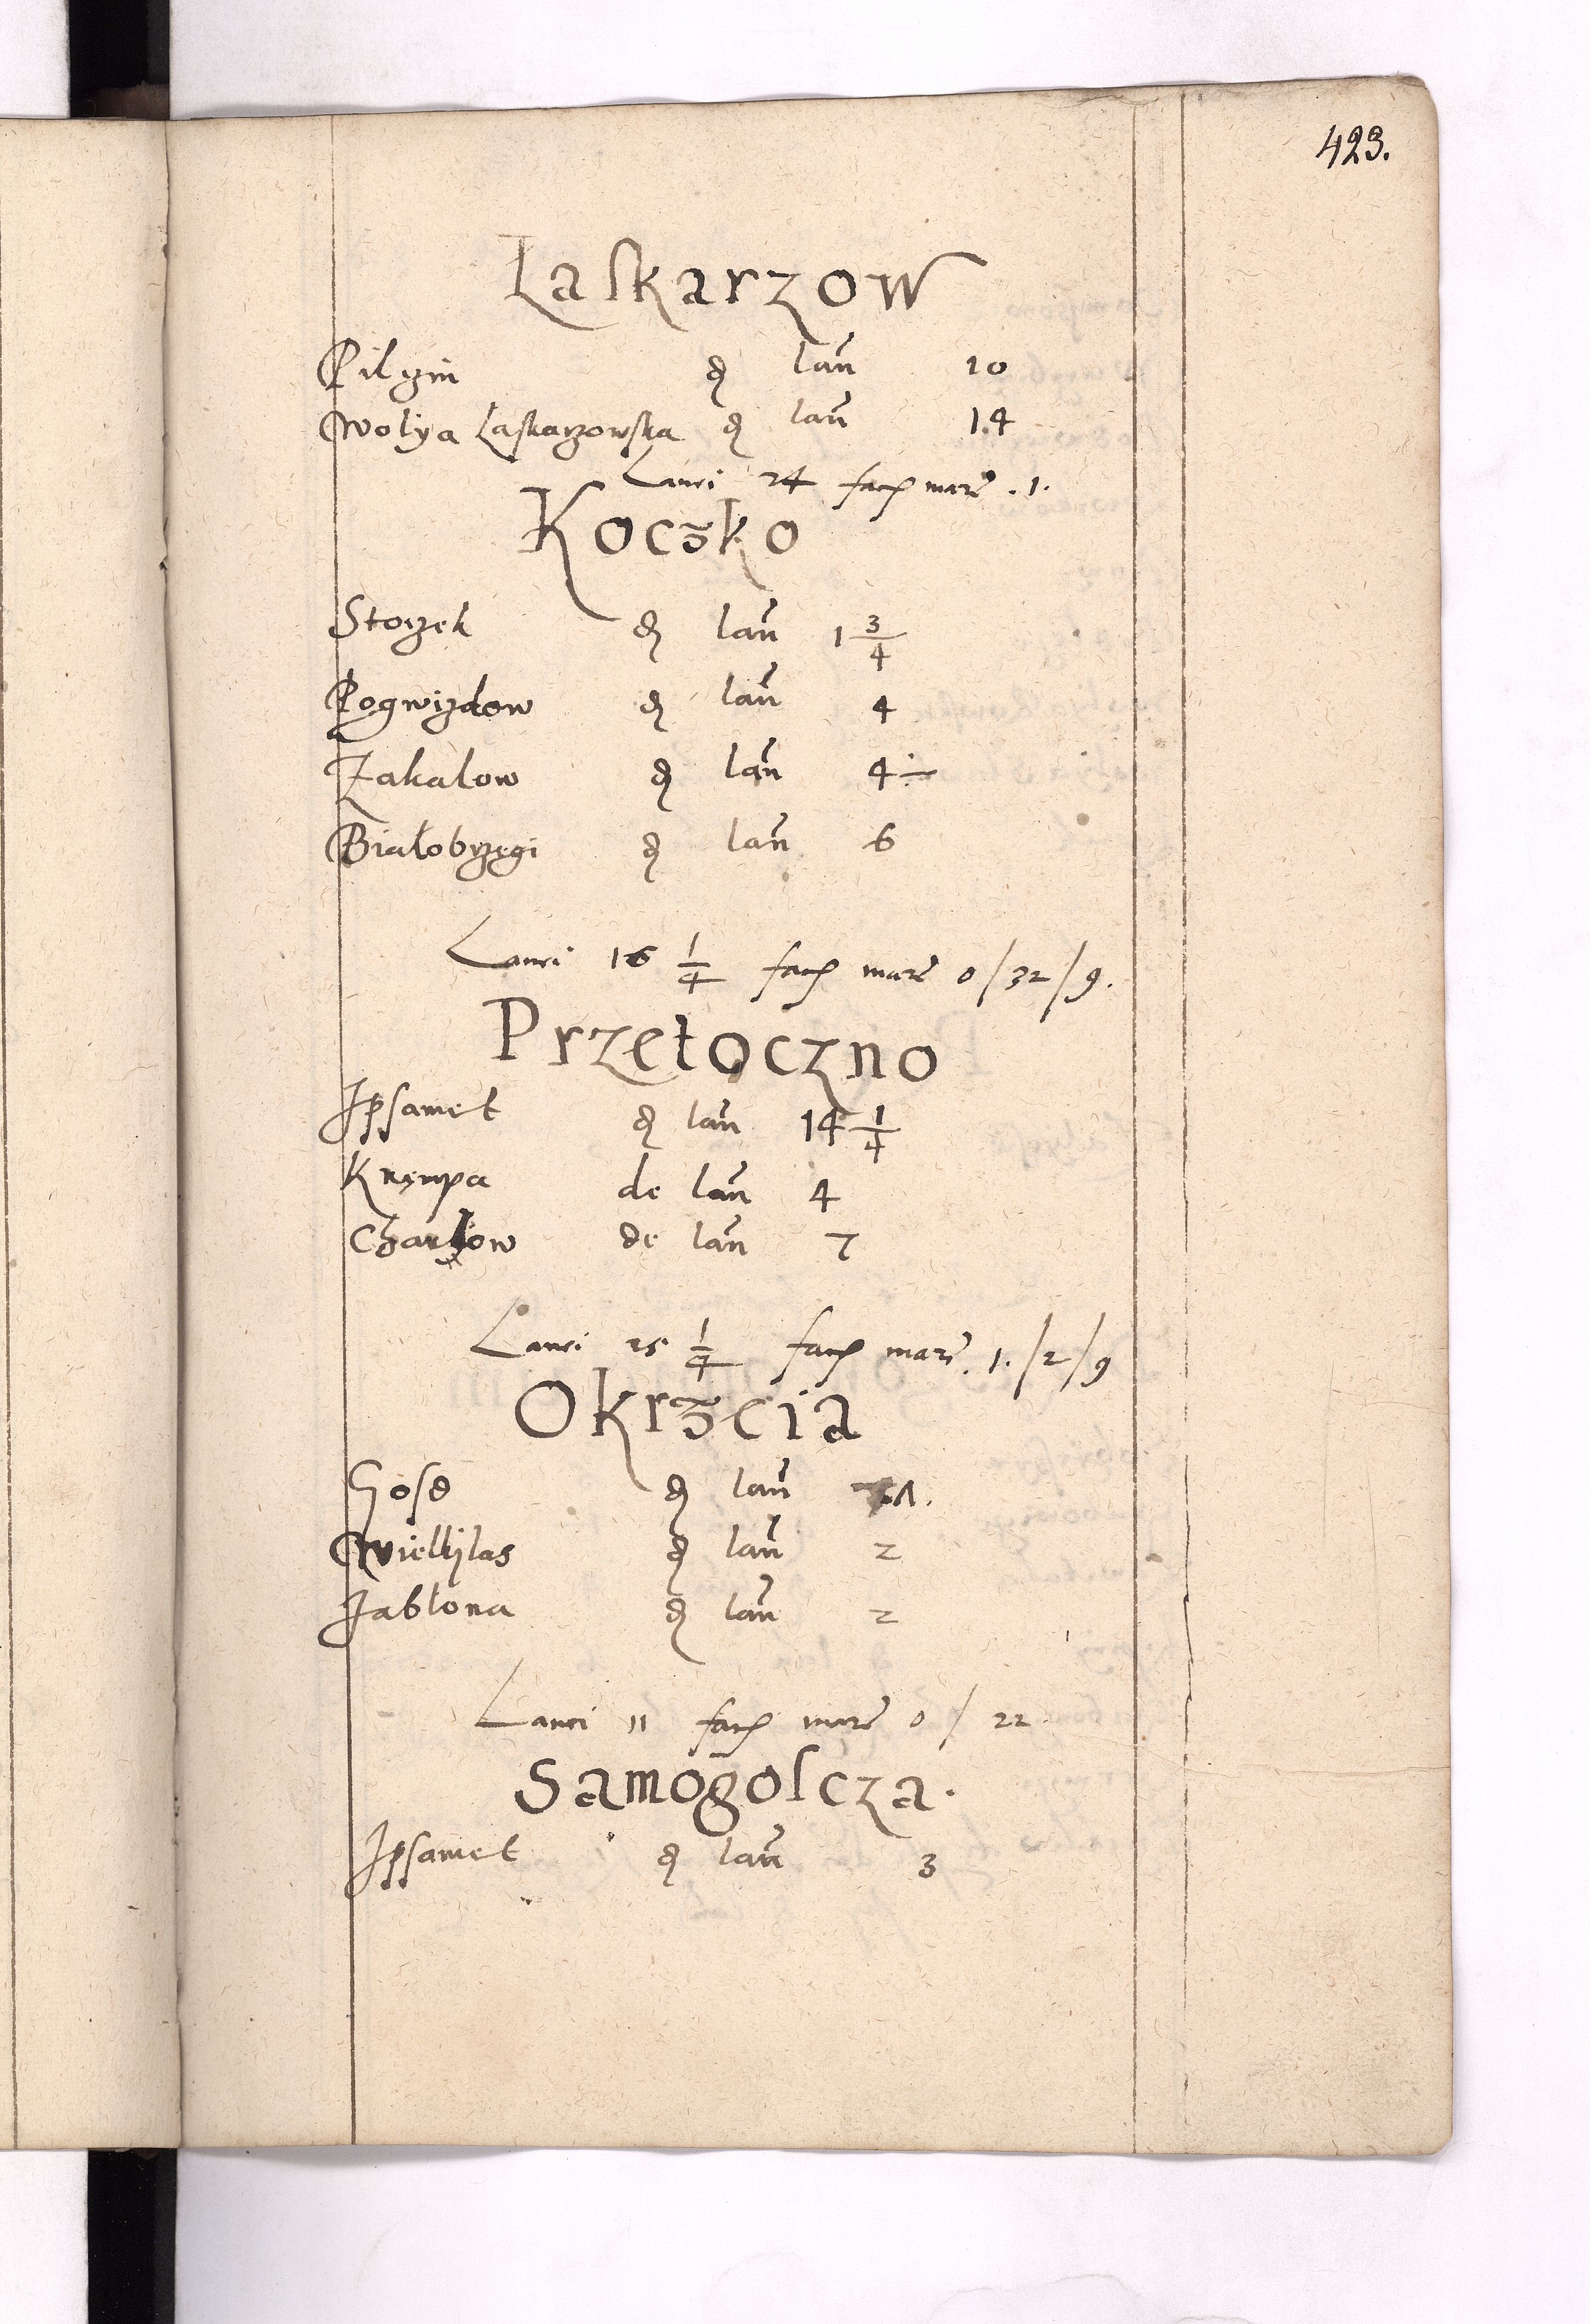 423.
Laskarzow
Pilczin de lan̄ 10
Wolya Laskarzowska de lan̄ 14
Lanei 24 fac̄ marc̄ .1.
Koczko
Stoczek de lan̄ 1 3/4
Pogwizdow de lan̄ 4
Zakalow de lan̄ 4 ÷
Białobrzegi de lan̄ 6
Lanei 16 1/4 fac̄ marc̄ 0/32/9.
Przetoczno
Ipsamet de lan̄ 14 1/4
Krępa de lan̄ 4
de lan̄ 7
Lanei 25 1/4 fac̄ marc̄ 1./2/9
Okrzeia
Gose de lan̄
Wielkylas de lan̄ 2
Jabłona de lan̄ 2
Lanei 11 fac̄ marc̄ 0/22
Samogolcza.
Ipsamet de lan̄ 3